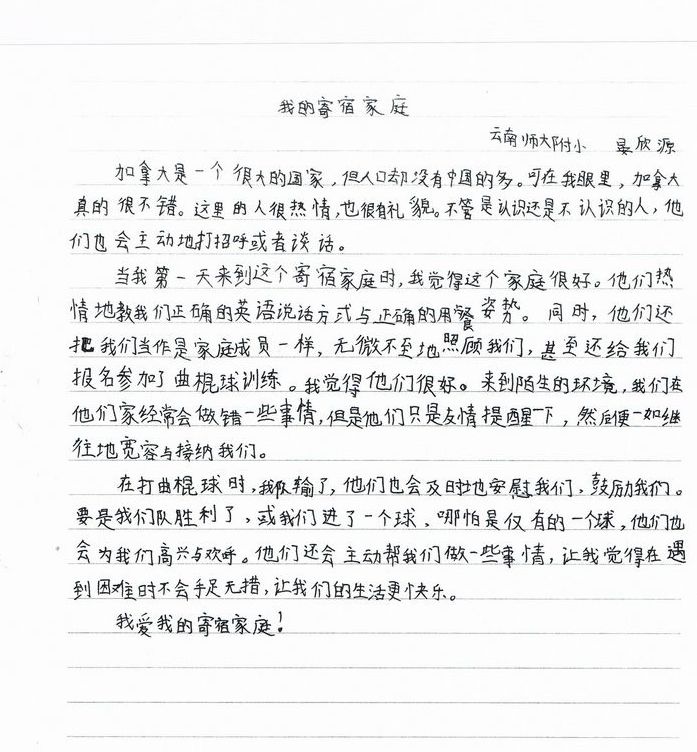 我的寄宿家庭
云南师大附小 晏欣源
加拿大是一个很大的国家，但人口却没有中国的多。可在我眼里，加拿大
真的很不错。这里的人很热情，也很有礼貌。不管是认识还是不认识的人，他
们也会主动地打招呼或者谈话。
当我第一天来到这个寄宿家庭时，我觉得这个家庭很好。他们热
情地教我们正确的英语说话方式与正确的用餐姿势。同时，他们还
把我们当作是家庭成员一样，无微不至地照顾我们，甚至还给我们
报名参加了曲棍球训练。我觉得他们很好。来到陌生的环境，我们在
他们家经常会做错一些事情，但是他们只是友情提醒一下，然后便一如继
往地宽容与接纳我们。
在打曲棍球时，我队输了，他们也会及时地安慰我们，鼓励我们。
要是我们队胜利了，或我们进了一个球，哪怕是仅有的一个球，他们也
会为我们高兴与欢呼。他们还会主动帮我们做一些事情，让我觉得在遇
到困难时不会手足无措，让我们的生活更快乐。
我爱我的寄宿家庭！